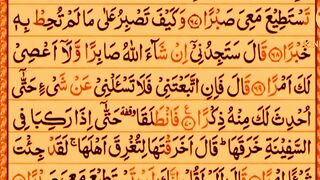 تَسْتَطِيْعَ مَعِيَ صَبْرًا ﴿۶۷﴾ وَكَيْفَ تَصْبِرُ عَلٰى مَا لَمْ تُحِطْ بِهٖ
خُبْرًا ﴿۶۸﴾ قَالَ سَتَجِدُنِيْٓ اِنْ شَآءَ اللّٰهُ صَابِرًا وَّلَآ اَعْصِيْ
لَكَ اَمْرًا ﴿۶۹﴾ قَالَ فَاِنِ اتَّبَعْتَنِيْ فَلَا تَسْـَٔلْنِيْ عَنْ شَيْءٍ حَتّٰٓى
اُحْدِثَ لَكَ مِنْهُ ذِكْرًا ﴿۷۰﴾ فَانْطَلَقَا ۥوقفة حَتّٰٓى اِذَا رَكِبَا فِي
السَّفِيْنَةِ خَرَقَهَا ؕ قَالَ اَخَرَقْتَهَا لِتُغْرِقَ اَهْلَهَا ۚ لَقَدْ جِئْتَ